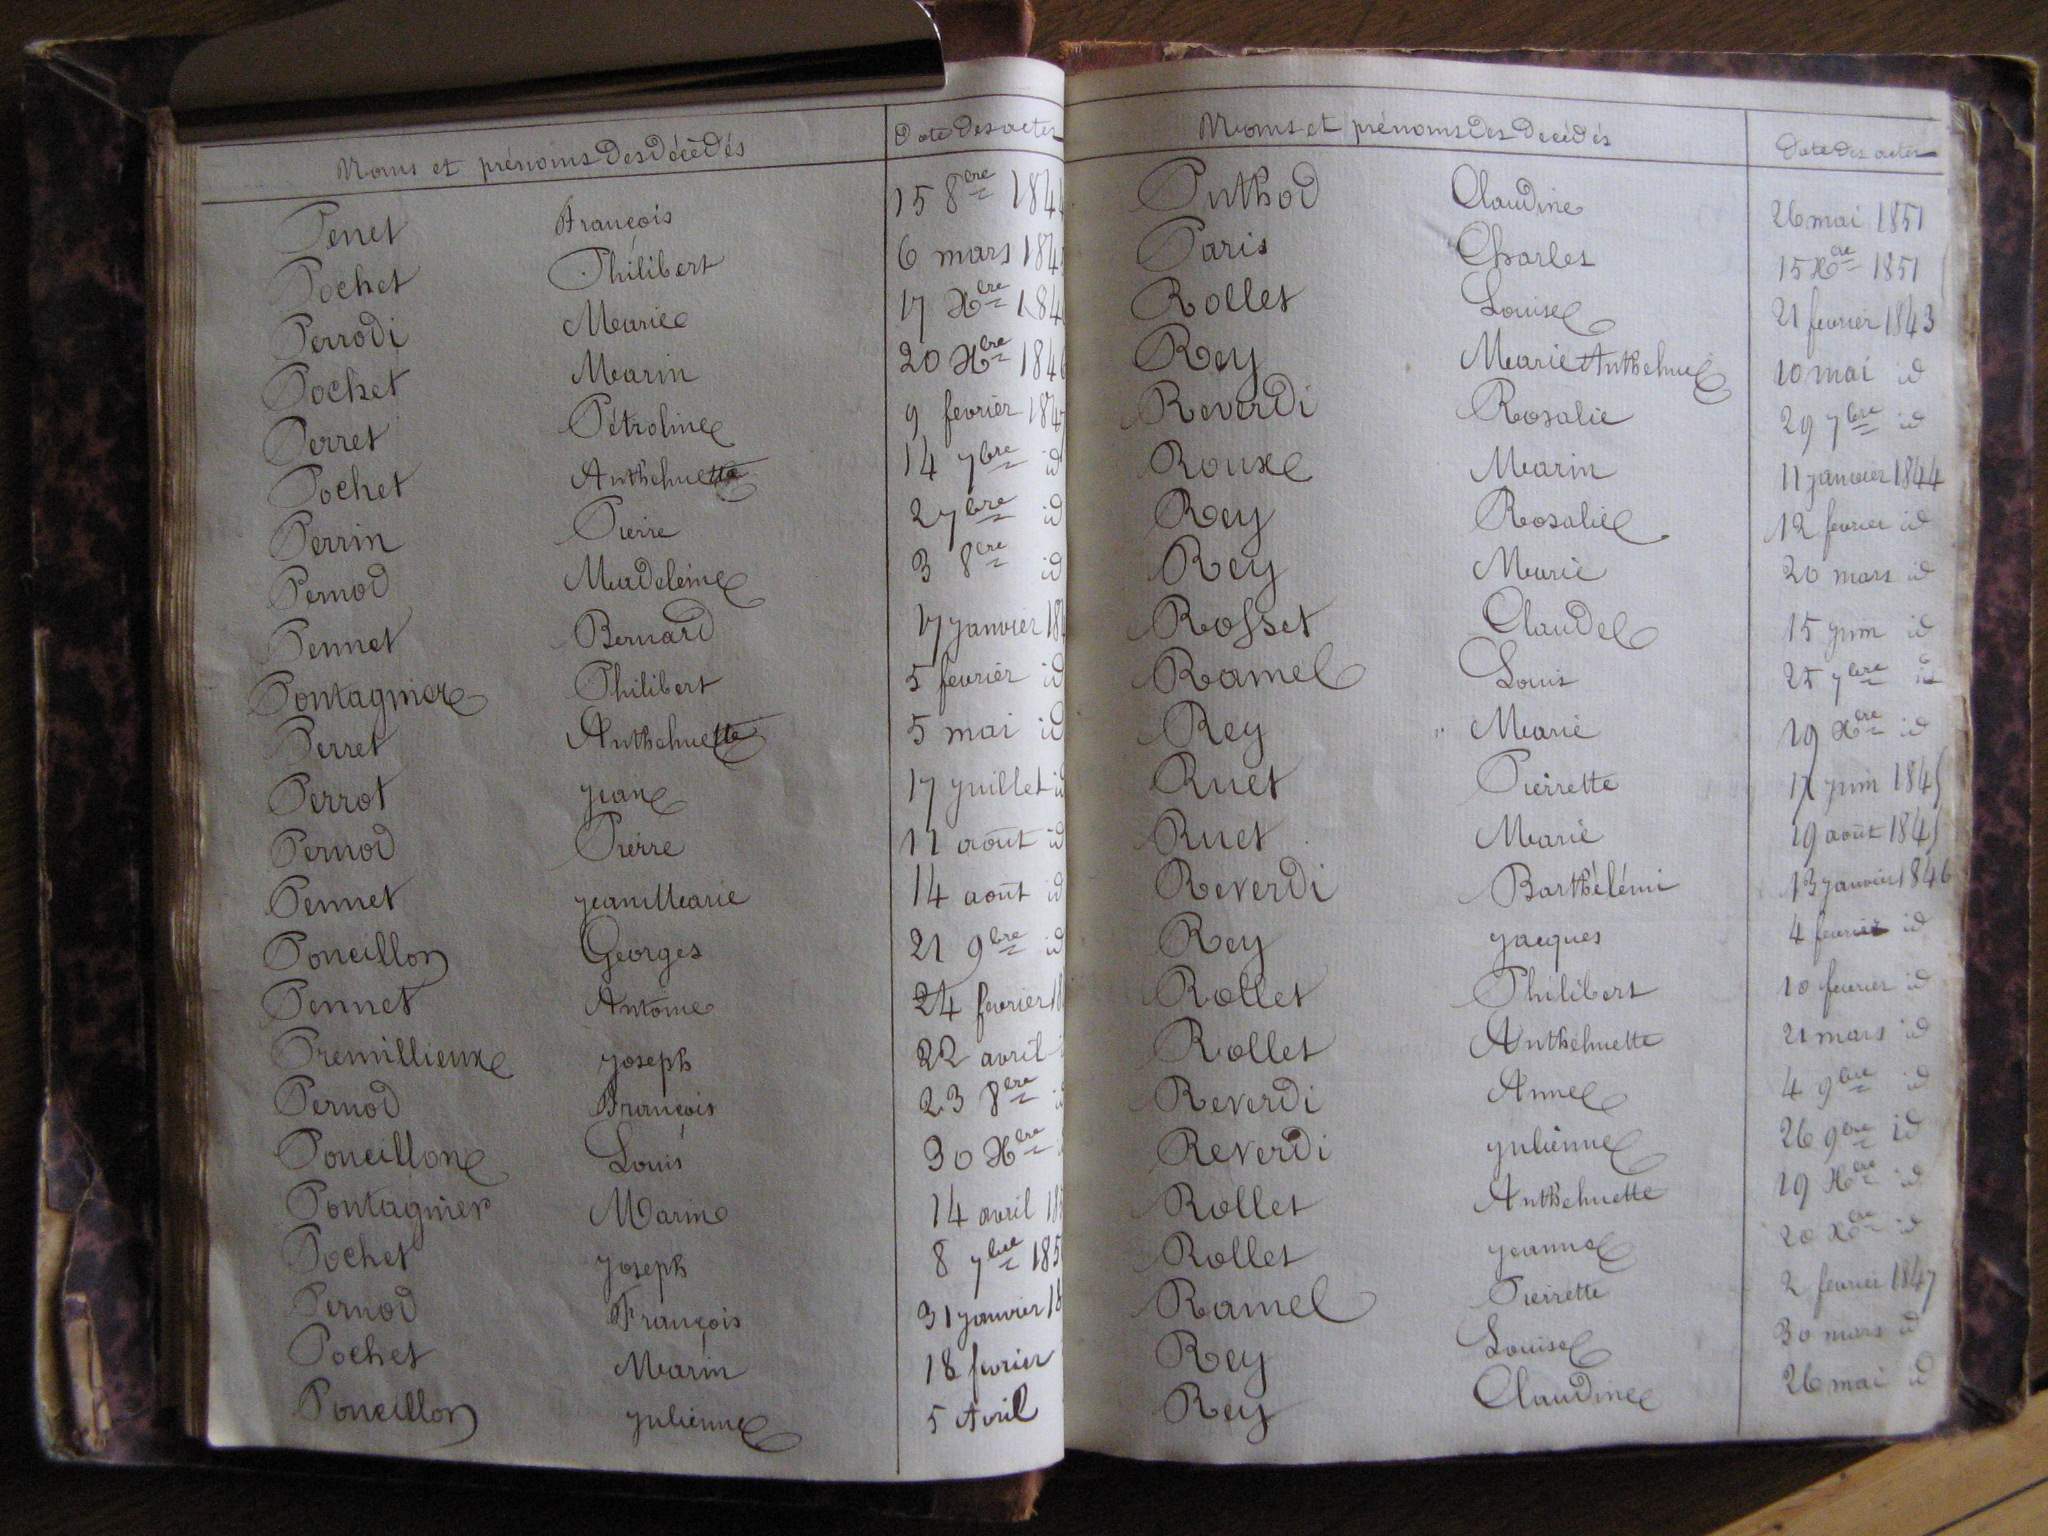 Noms et prénoms des décédés Date des actes
Penet François 15 8bre 1844
Pochet Philibert 6 mars 184
Perrodi Marie 17 Xbre 184
Pochet Marin 20 Xbre 1846
Perret Pétroline 9 fevrier 1847
Pochet Anthelmette 14 7bre id
Perrin Pierre 27bre id
Pernod Madeleine 3 8bre id
Pennet Bernard 17 janvier 18
Pontagnier Philibert 5 fevrier id
Perret Anthelmette 5 mai id
Perrot jean 17 juillet id
Pernod Pierre 11 août id
Pennet jean Marie 14 août id
Poncillon Georges 21 9bre id
Pennet Antoine 24 fevrier 18
Premillieux joseph 22 avril
Pernod François 23 8bre
Poncillon Louis 30 Xbre
Pontagnier Marin 14 avril 18
Pochet joseph 8 7bre 185
Pernod François 31 janvier 18
Pochet Marin 18 fevrier
Poncillon julienne 5 Avril
Noms et prénoms des Decédés Date des actes
Puthod Claudine 26 mai 1851
Paris Charles 15 Xbre 1851
Rollet Louise 21 fevrier 1843
Rey Marie Anthelmie 10 mai id
Reverdi Rosalie 29 7bre id
Roux Marin 11 janvier 1844
Rey Rosalie 12 fevrier id
Rey Marie 20 mars id
Rosset Claude 15 juin id
Ramel Louis 25 7bre id
Rey Marie 19 Xbre id
Ruet Pierrette 17 juin 1845
Ruet Marie 19 août 1845
Reverdi Barthélémi 13 janvier 1846
Rey jacques 4 fevrier id
Rollet Philibert 10 fevrier id
Rollet Anthelmette 21 mars id
Reverdi Anne 4 9bre id
Reverdi julienne 26 9bre id
Rollet Anthelmette 19 Xbre id
Rollet jeanne 20 Xbre id
Ramel Pierrette 2 fevrier 1847
Rey Louise 30 mars id
Rey Claudine 26 mai id